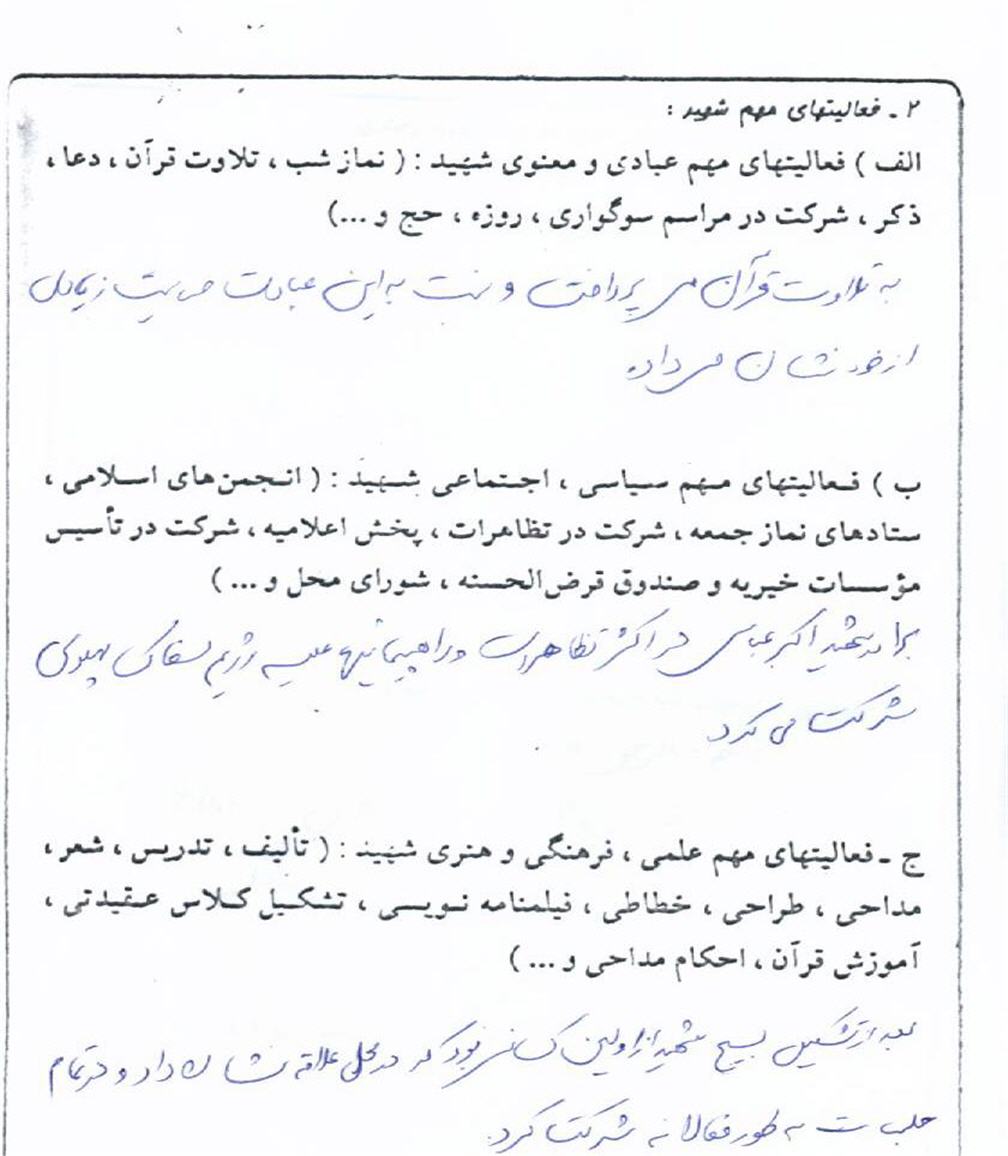 ۲ ـ فعالیتهای مهم شهید :
الف ) فعالیتهای مهم عبادی و معنوی شهید : ( نماز شب ، تلاوت قرآن ، دعا ،
ذکر ، شرکت در مراسم سوگواری ، روزه ، حج و ...)
به تلاوت قرآن می پرداخت و نسبت به این عبادت
از خود نشان می داد.
ب ) فعالیتهای مهم سیاسی ، اجتماعی شهید : ( انجمن‌های اسلامی ،
ستادهای نماز جمعه ، شرکت در تظاهرات ، پخش اعلامیه ، شرکت در تأسیس
مؤسسات خیریه و صندوق قرض‌الحسنه ، شورای محل و ... )
شهید اکبر عباسی در اکثر تظاهرات و راهپیمائیها علیه رژیم سفاک پهلوی
شرکت می کرد.
ج ـ فعالیتهای مهم علمی ، فرهنگی و هنری شهید : ( تألیف ، تدریس ، شعر ،
مداحی ، طراحی ، خطاطی ، فیلمنامه نویسی ، تشکیل کلاس عقیدتی ،
آموزش قرآن ، احکام مداحی و ... )
بعد از تشکیل بسیج شهید از اولین کسانی بود که در محل علاقه نشان داد و در تمام
جلسات به طور فعالانه شرکت کرد.